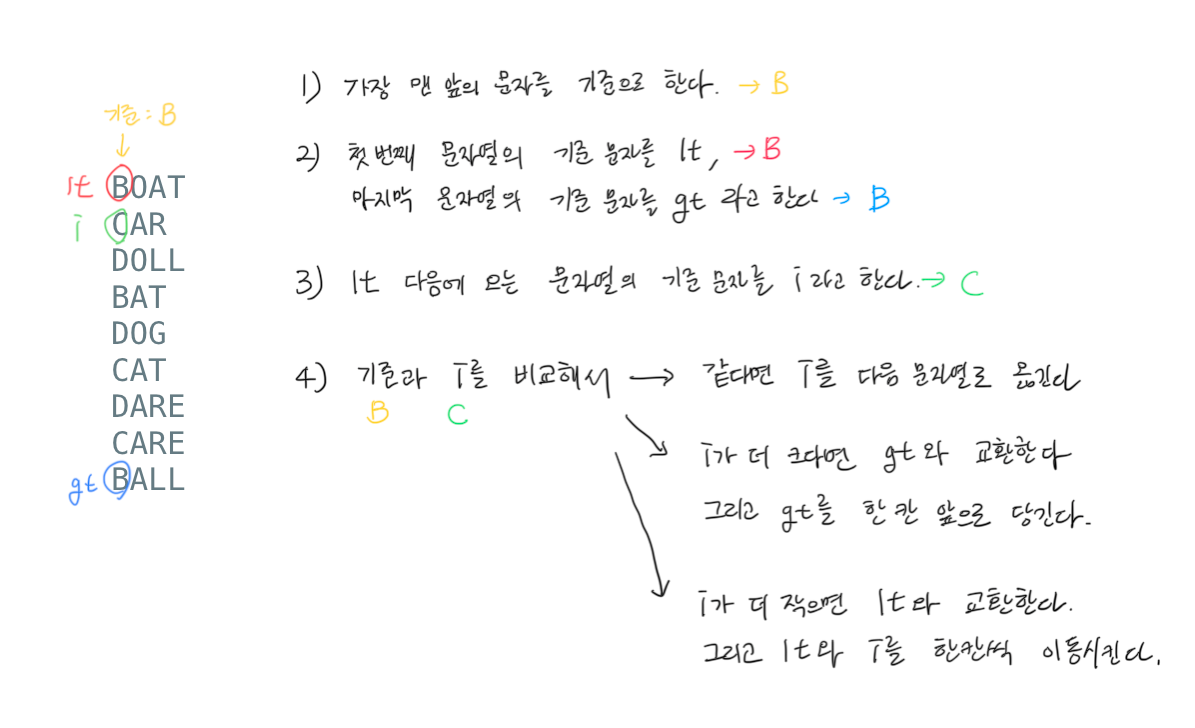 기준 : B
lt BOAT
i CAR
DOLL
BAT
DOG
CAT
DARE
CARE
gt BALL
1) 가장 맨 앞의 문자를 기준으로 한다. → B
2) 첫 번째 문자열의 기준 문자를 lt, → B
마지막 문자열의 기준 문자를 gt 라고 한다 → B
3) lt 다음에 오는 문자열의 기준 문자를 i 라고 한다. → C
4) 기준과 i를 비교해서 → 같다면 i를 다음 문자열로 옮긴다
B C
i가 더 크다면 gt와 교환한다
그리고 gt를 한 칸 앞으로 당긴다.
i가 더 작으면 lt와 교환한다.
그리고 lt와 i를 한칸씩 이동시킨다.